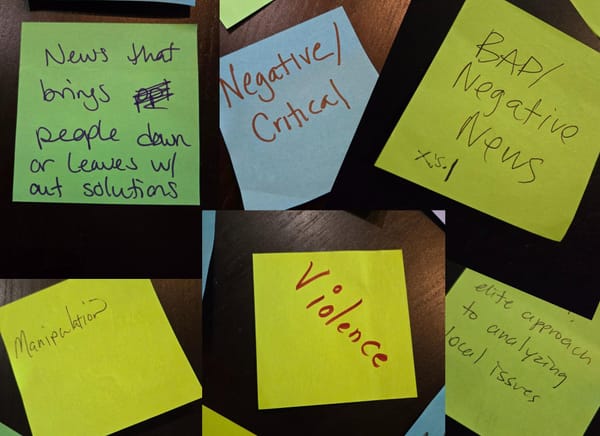 News that
brings
people down
or leaves w/
out solutions
Negative/
Critical
BAD/
Negative
News
Manipulation
Violence
elite approach
to analyzing
local issues